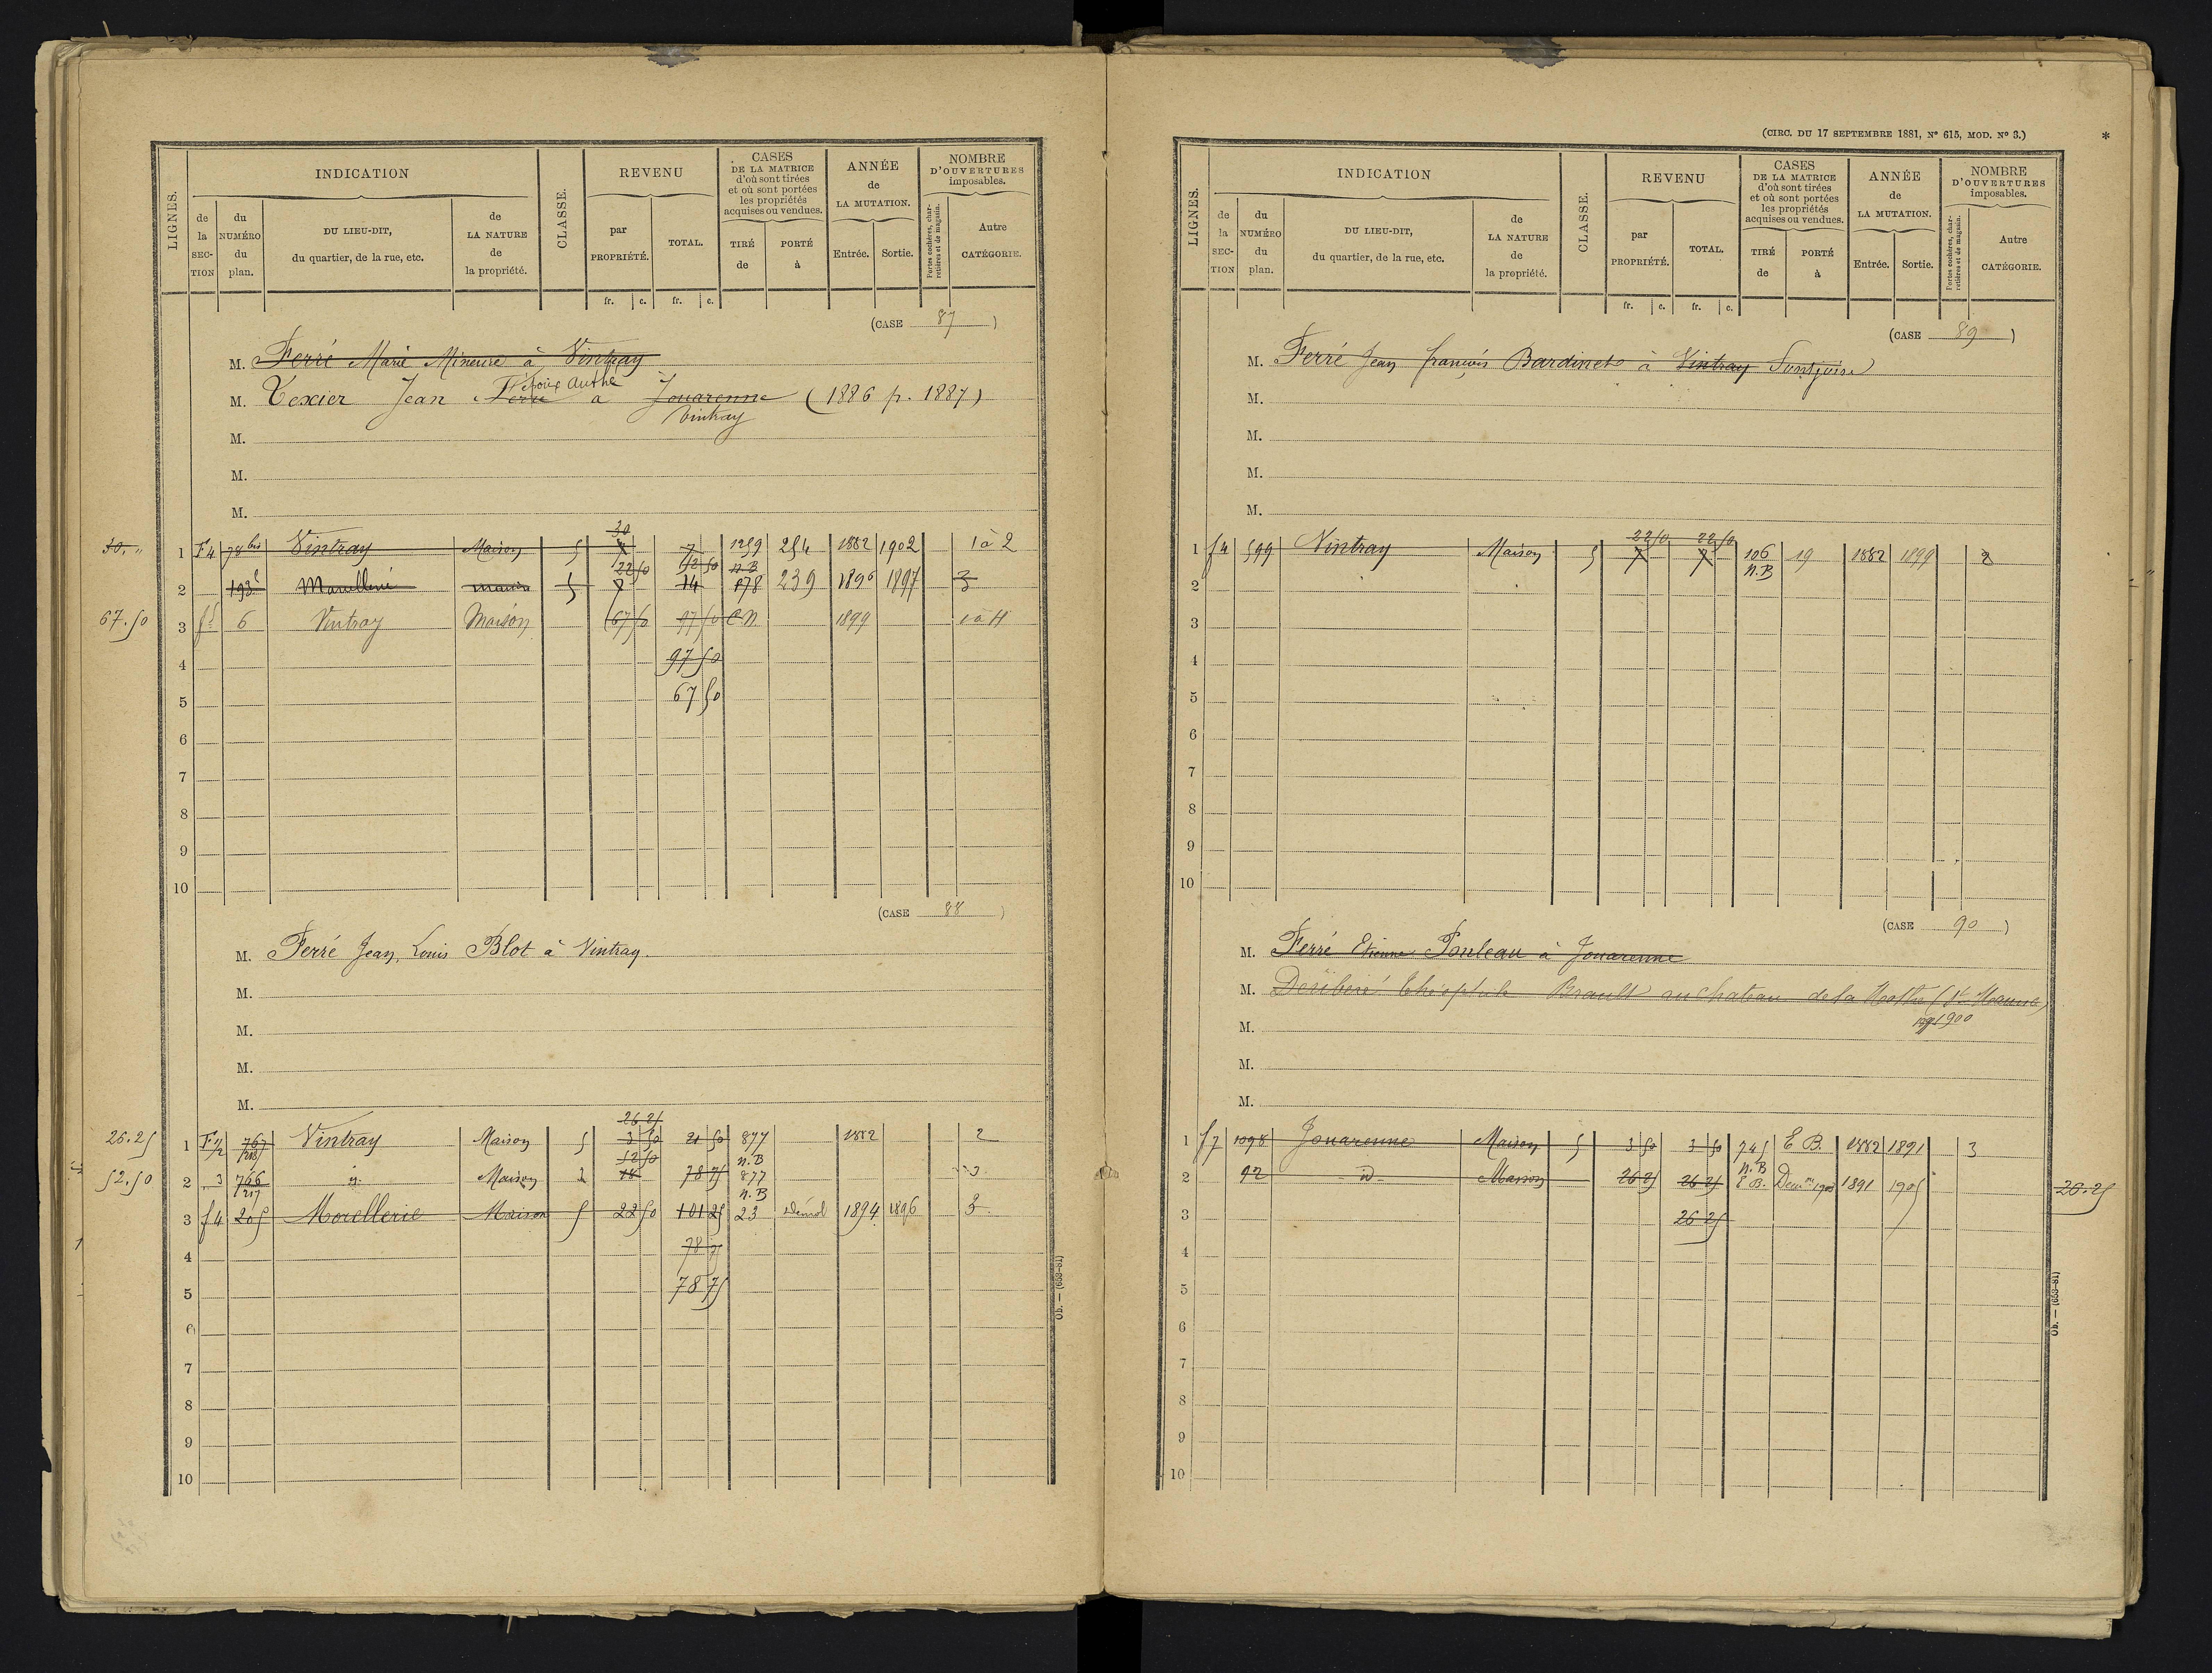 LIGNES.
INDICATION
de la SECTION
du NUMÉRO du plan.
DU LIEU-DIT, du quartier, de la rue, etc.
de LA NATURE de la propriété.
CLASSE.
REVENU
par PROPRIÉTÉ.
TOTAL.
fr. c. fr. c.
CASES DE LA MATRICE d'où sont tirées et où sont portées les propriétés acquises ou vendues.
TIRÉ de
PORTÉ à
ANNÉE de LA MUTATION.
Entrée. Sortie.
NOMBRE D'OUVERTURES imposables.
Portes cochères, charretières et de magasin.
Autre CATÉGORIE.
(CASE 87)
M. Ferré Marie Mineure à Vintray
M. Texier Jean Ferré à Jouarenne (1886 p. 1887)
Vintray
M.
M.
M.
30
1 F4 78 bis Vintray Maison 5 7 7 1259 254 1882 1902 1 à 2
22 50 52 50 n.B
2 193 maison 5 7 14 878 239 1896 1897 3
67.50 3 6 Vintray Maison 67 50 97 50 C.N 1899 1 à 4
4 97 50
5 67 50
6
7
8
9
10
(CASE 88)
M. Ferré Jean, Louis Blot à Vintray.
M.
M.
M.
M.
26 25
26.25 1 767 Vintray Maison 5 3 50 21 50 877 1882 2
52 50 n.B
52.50 2 3 766 id. Maison 2 18 78 75 877 3
217 n.B
3 f4 205 Morellerie Maison 5 22 50 101 25 23 démol 1894 1896 3
4 78 75
5 78 75
6
7
8
9
10
Ob. — (653-81)
(CIRC. DU 17 SEPTEMBRE 1881, N° 615, MOD. N° 3.)
*
LIGNES.
INDICATION
de la SECTION
du NUMÉRO du plan.
DU LIEU-DIT, du quartier, de la rue, etc.
de LA NATURE de la propriété.
CLASSE.
REVENU
par PROPRIÉTÉ.
TOTAL.
fr. c. fr. c.
CASES DE LA MATRICE d'où sont tirées et où sont portées les propriétés acquises ou vendues.
TIRÉ de
PORTÉ à
ANNÉE de LA MUTATION.
Entrée. Sortie.
NOMBRE D'OUVERTURES imposables.
Portes cochères, charretières et de magasin.
Autre CATÉGORIE.
(CASE 89)
M. Ferré Jean françois Bardinet à Vintray
M.
M.
M.
M.
22 50 22 50
1 f4 599 Vintray Maison 5 7 7 106 19 1882 1899 2
n.B
2
3
4
5
6
7
8
9
10
(CASE 90)
M. Ferré Etienne Pouleau à Jouarenne
M. Théophile Brault au chateau de la Mothe
M. 1900
M.
M.
1 f7 1098 Jouarenne Maison 5 3 50 3 50 745 E B. 1882 1891 3
n.B
2 92 id. Maison 26 25 26 25 E B. 1891 1905 26.25
3 26 25
4
5
6
7
8
9
10
Ob. — (653-81)